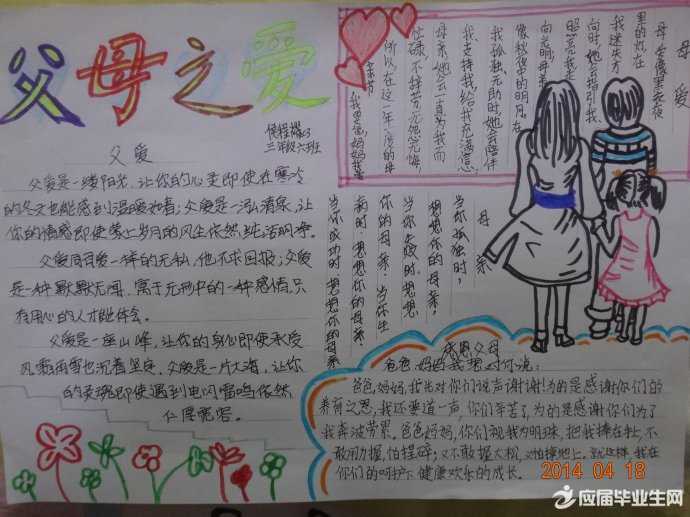 父母之爱
三年级六班
父爱
父爱是一缕阳光,让你的心灵即使在寒冷
的冬天也能感到温暖如春;父爱是一泓清泉,让
你的情感即使蒙上岁月的风尘依然纯洁明净。
父爱同母爱一样的无私,他不求回报;父爱
是一种默默无闻,寓于无形中的一种感情,只
有用心的人才能体会。
父爱是一座山峰,让你的身心即使承受
风霜雨雪也沉着坚定,父爱是一片大海,让你
的灵魂即使遇到电闪雷鸣依然
仁厚宽容。
母爱
母爱像黑夜
里的灯在
我迷失方
向时她会指引我
照亮我走
向光明母亲
像秋夜中的明月在
我孤独无助时,她会陪伴
我支持我给我充满信心
母亲,她会一直为我而
忙碌,不掉劳无她完悔,
所以在这一年一度的母
亲节
母亲
当你孤独时,
想想你的母亲。
当你失败时,想想
你的母亲,当你生
病时,想想你的母亲。
当你成功时,想想你的母亲
感恩父母
爸爸,妈妈我想对你说:
爸爸,妈妈,我先对你们说声谢谢!为的是感谢你们的
养育之恩,我还要道一声,你们辛苦了,为的是感谢你们为了
我奔波劳累。爸爸,妈妈,你们视我为明珠,把我捧在手上,不
敢用力握,怕捏碎;又不敢握太松,又怕摔地上。就这样,我在
你们的呵护下健康欢乐的成长。
2014 04 18
应届毕业生网